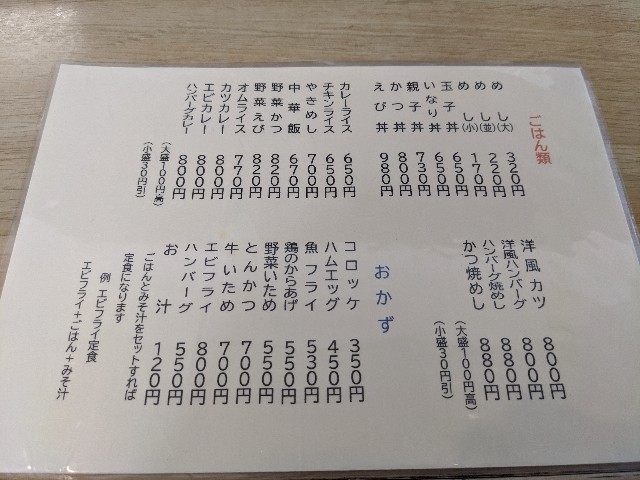 ごはん類
めし(大) 320円
めし(並) 220円
めし(小) 170円
玉子丼 650円
いなり丼 650円
親子丼 730円
かつ丼 800円
えび丼 980円
カレーライス 650円
チキンライス 650円
やきめし 700円
中華飯 670円
野菜かつ 820円
野菜えび 820円
オムライス 770円
カツカレー 800円
エビカレー 800円
ハンバーグカレー 800円
(大盛100円高)
(小盛30円引)
洋風カツ 800円
洋風ハンバーグ 800円
ハンバーグ焼めし 880円
かつ焼めし 880円
(大盛100円高)
(小盛30円引)
おかず
コロッケ 350円
ハムエッグ 450円
魚フライ 530円
鶏のからあげ 550円
野菜いため 550円
とんかつ 700円
牛いため 700円
エビフライ 800円
ハンバーグ 550円
お汁 120円
ごはんとみそ汁をセットすれば
定食になります
例 エビフライ定食
エビフライ+ごはん+みそ汁